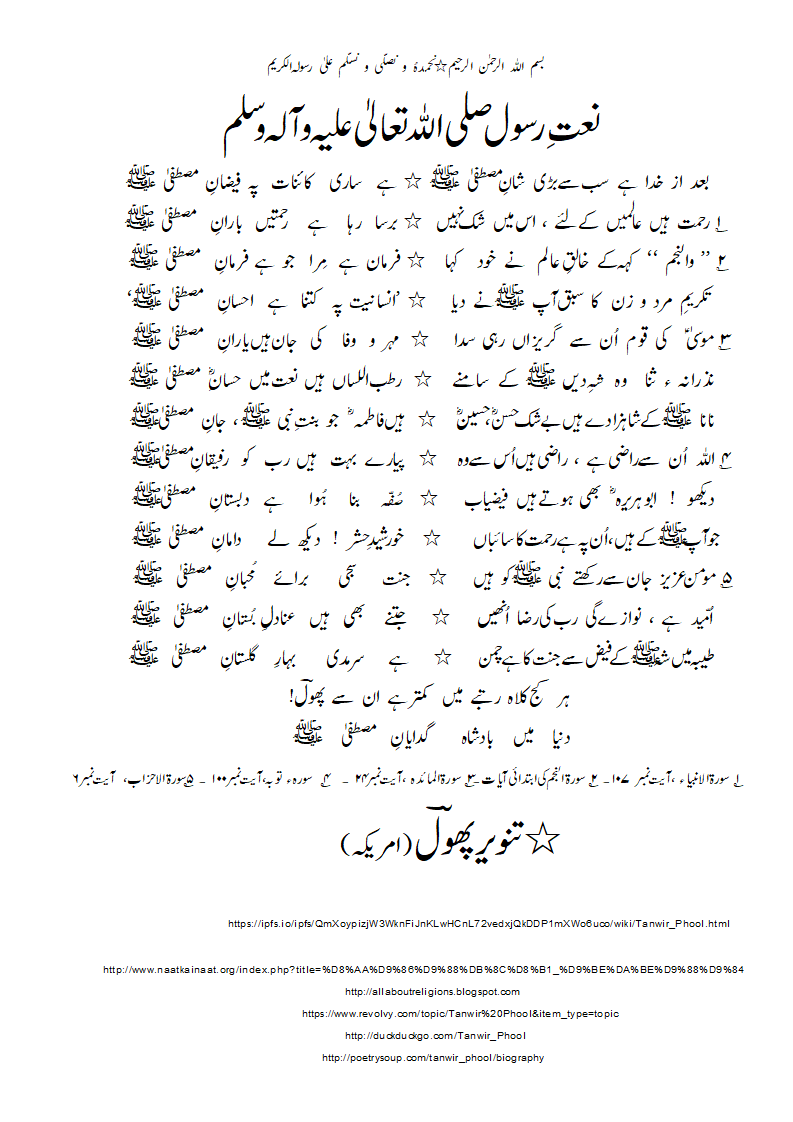 بسم اللہ الرحمٰن الرحیم☆نحمدہٗ و نصلّی و نسلّم علیٰ رسولہ الکریم
نعتِ رسول صلی اللہ تعالیٰ علیہ وآلہ وسلم
بعد از خدا ہے سب سے بڑی شانِ مصطفیٰ ﷺ ☆ ہے ساری کائنات پہ فیضانِ مصطفیٰ ﷺ
۱؎ رحمت ہیں عالمیں کے لئے ، اس میں شک نہیں ☆ برسا رہا ہے رحمتیں بارانِ مصطفیٰ ﷺ
۲؎ ’’ والنجم ‘‘ کہہ کے خالقِ عالم نے خود کہا ☆ فرمان ہے مِرا جو ہے فرمانِ مصطفیٰ ﷺ
تکریمِ مرد و زن کا سبق آپ ﷺ نے دیا ☆ ’انسانیت پہ کتنا ہے احسانِ مصطفیٰ ﷺ‘
۳؎ موسیٰ ؑ کی قوم اُن سے گریزاں رہی سدا ☆ مہر و وفا کی جان ہیں یارانِ مصطفیٰ ﷺ
نذرانہ ء ثنا وہ شہِ دیں ﷺ کے سامنے ☆ رطب اللساں ہیں نعت میں حسانؓ مصطفیٰ ﷺ
نانا ﷺ کے شاہزادے ہیں بے شک حسنؓ ، حسینؓ ☆ ہیں فاطمہ ؓ جو بنتِ نبی ﷺ ، جانِ مصطفیٰ ﷺ
۴؎ اللہ اُن سے راضی ہے ، راضی ہیں اُس سے وہ ☆ پیارے بہت ہیں رب کو رفیقانِ مصطفیٰ ﷺ
دیکھو ! ابو ہریرہ ؓ بھی ہوتے ہیں فیضیاب ☆ صُفّہ بنا ہُوا ہے دبستانِ مصطفیٰ ﷺ
جو آپ ﷺ کے ہیں ، اُن پہ ہے رحمت کا سائباں ☆ خورشیدِ حشر ! دیکھ لے دامانِ مصطفیٰ ﷺ
۵؎ مومن عزیز جان سے رکھتے نبی ﷺ کو ہیں ☆ جنت سجی برائے مُحبانِ مصطفیٰ ﷺ
اُمّید ہے ، نوازے گی رب کی رضا اُنھیں ☆ جتنے بھی ہیں عنادلِ بُستانِ مصطفیٰ ﷺ
طیبہ میں شہ ﷺ کے فیض سے جنت کا ہے چمن ☆ ہے سرمدی بہارِ گلستانِ مصطفیٰ ﷺ
ہر کج کلاہ رتبے میں کمتر ہے ان سے پھولؔ!
دنیا میں بادشاہ گدایانِ مصطفیٰ ﷺ
۱؎ سورۃ الانبیاء ، آیت نمبر ۱۰۷ ۔ ۲؎ سورۃ النجم کی ابتدائی آیات ۳؎ سورۃ المائدہ ، آیت نمبر ۲۴ ۔ ۴؎ سورہء توبہ ، آیت نمبر ۱۰۰ ۔ ۵؎ سورۃ الاحزاب ، آیت نمبر ۶
☆ تنویر پھولؔ (امریکہ)
https://ipfs.io/ipfs/QmXoypizjW3WknFiJnKLwHCnL72vedxjQkDDP1mXWo6uco/wiki/Tanwir_Phool.html
http://www.naatkainaat.org/index.php?title=%D8%AA%D9%86%D9%88%DB%8C%D8%B1_%D9%BE%DA%BE%D9%88%D9%84
http://allaboutreligions.blogspot.com
https://www.revolvy.com/topic/Tanwir%20Phool&item_type=topic
http://duckduckgo.com/Tanwir_Phool
http://poetrysoup.com/tanwir_phool/biography